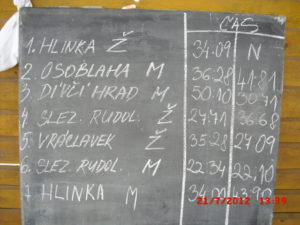 ČAS
1. HLINKA Ž 34.09 N
2. OSOBLAHA M 36.28 41.81
3 DIVČÍ HRAD M 50.10
4 SLEZ. RUDOL. Ž 36.68
5. VRACLAVEK Ž 35.28 27.09
6. SLEZ. RUDOL. M 22.34 22,10
7 HLINKA M 43.90
21/7/2012